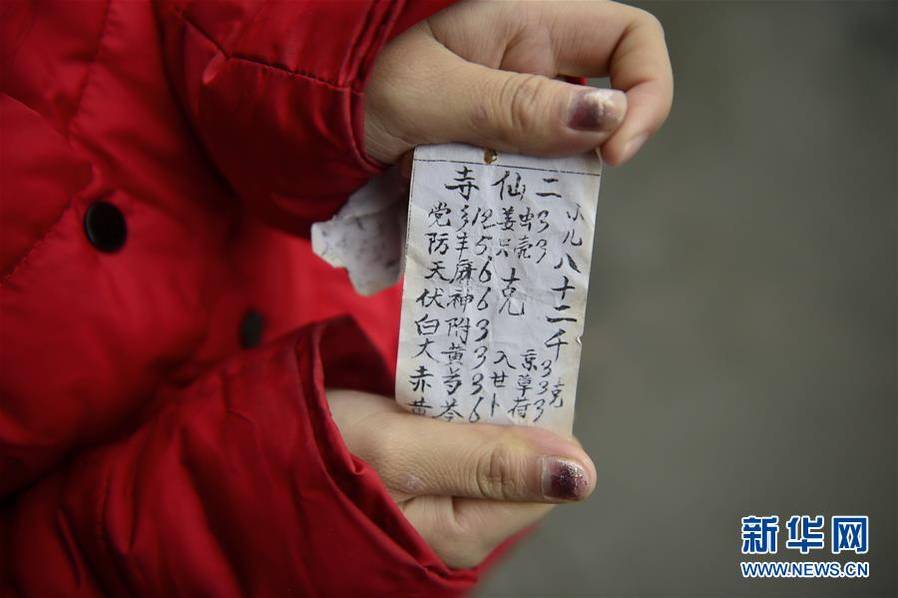 寺仙二
党 12 姜虫3
防丰5 只壳3
天麻6
伏神6 克
白附3
大黄3 入京3
赤芍3 甘草3克
黄芩6 卜荷3
小儿八十二千
新华网
WWW.NEWS.CN